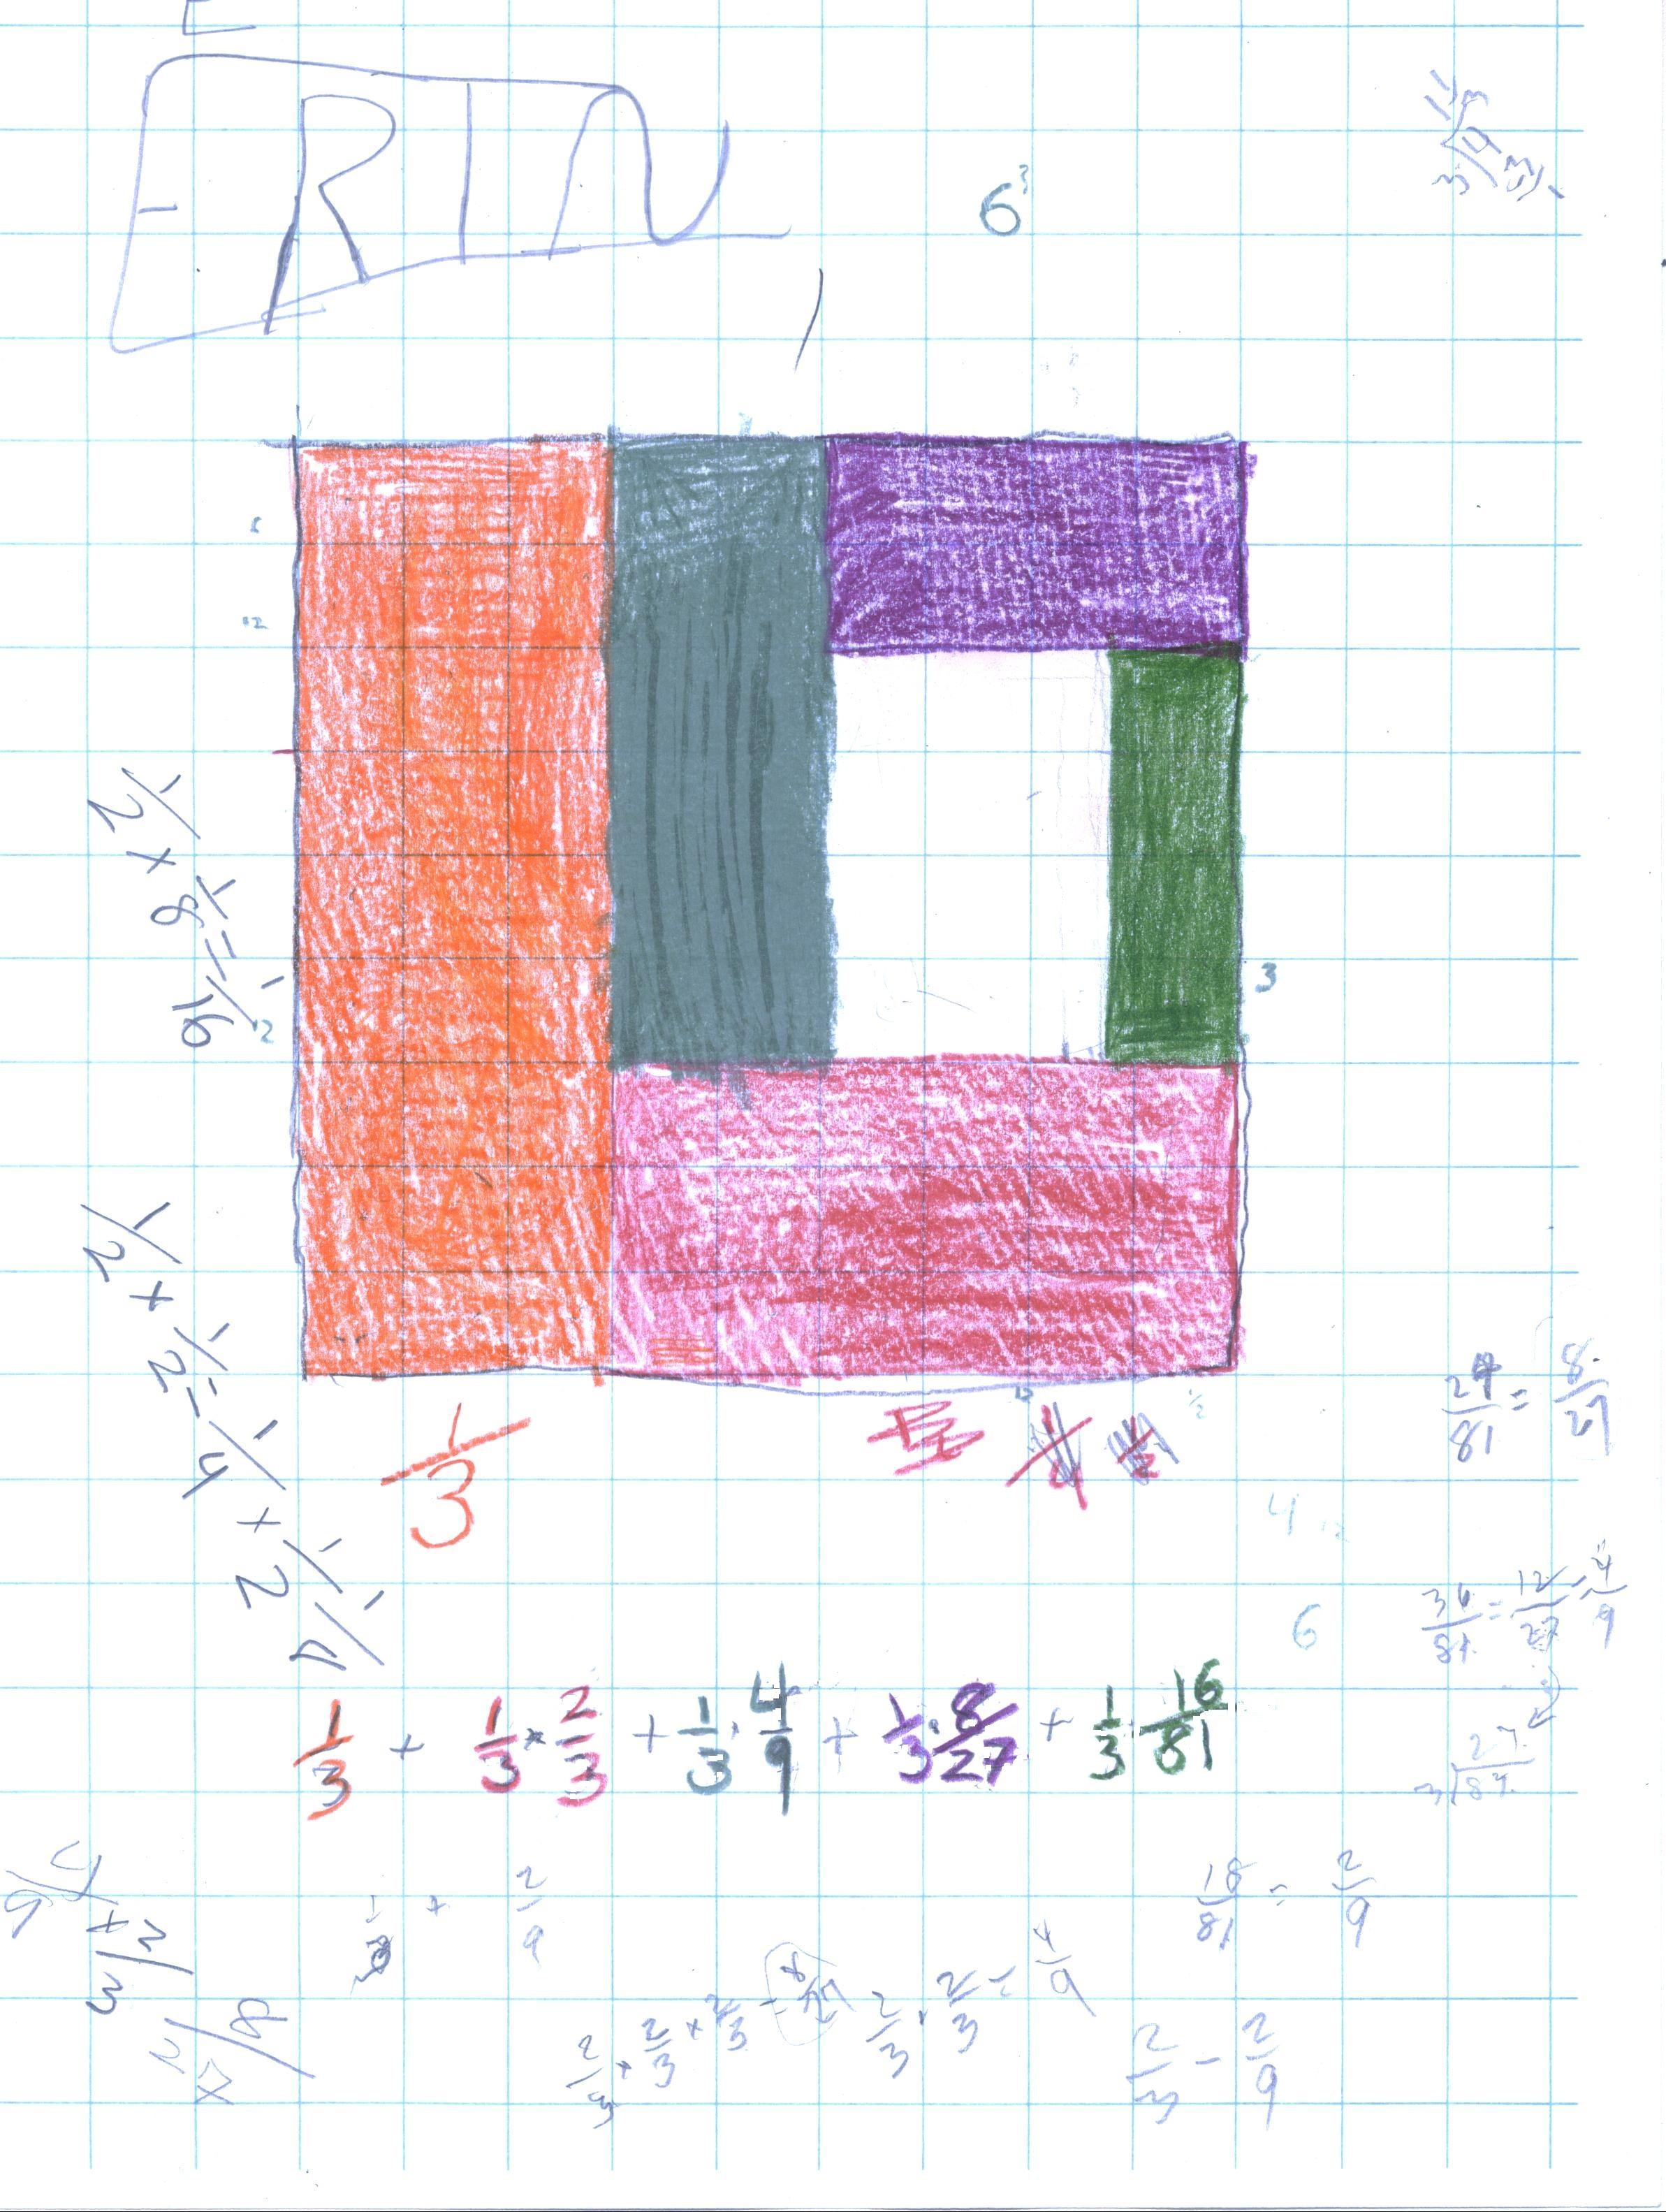 ERIN
6³
1/2 × 1/8 = 1/16
3
1/2 × 1/2 = 1/4 × 1/2
1/3
24/81 = 8/27
4 12
6
36/81 = 12/27 = 4/9
1/3 + 1/3 × 2/3 + 1/3 · 4/9 + 1/3 · 8/27 + 1/3 · 16/81
+ 2/9
18/81 = 2/9
2/3 × 2/3 × 2/3 = 8/27
2/3 · 2/3 = 4/9
2/3 - 2/9